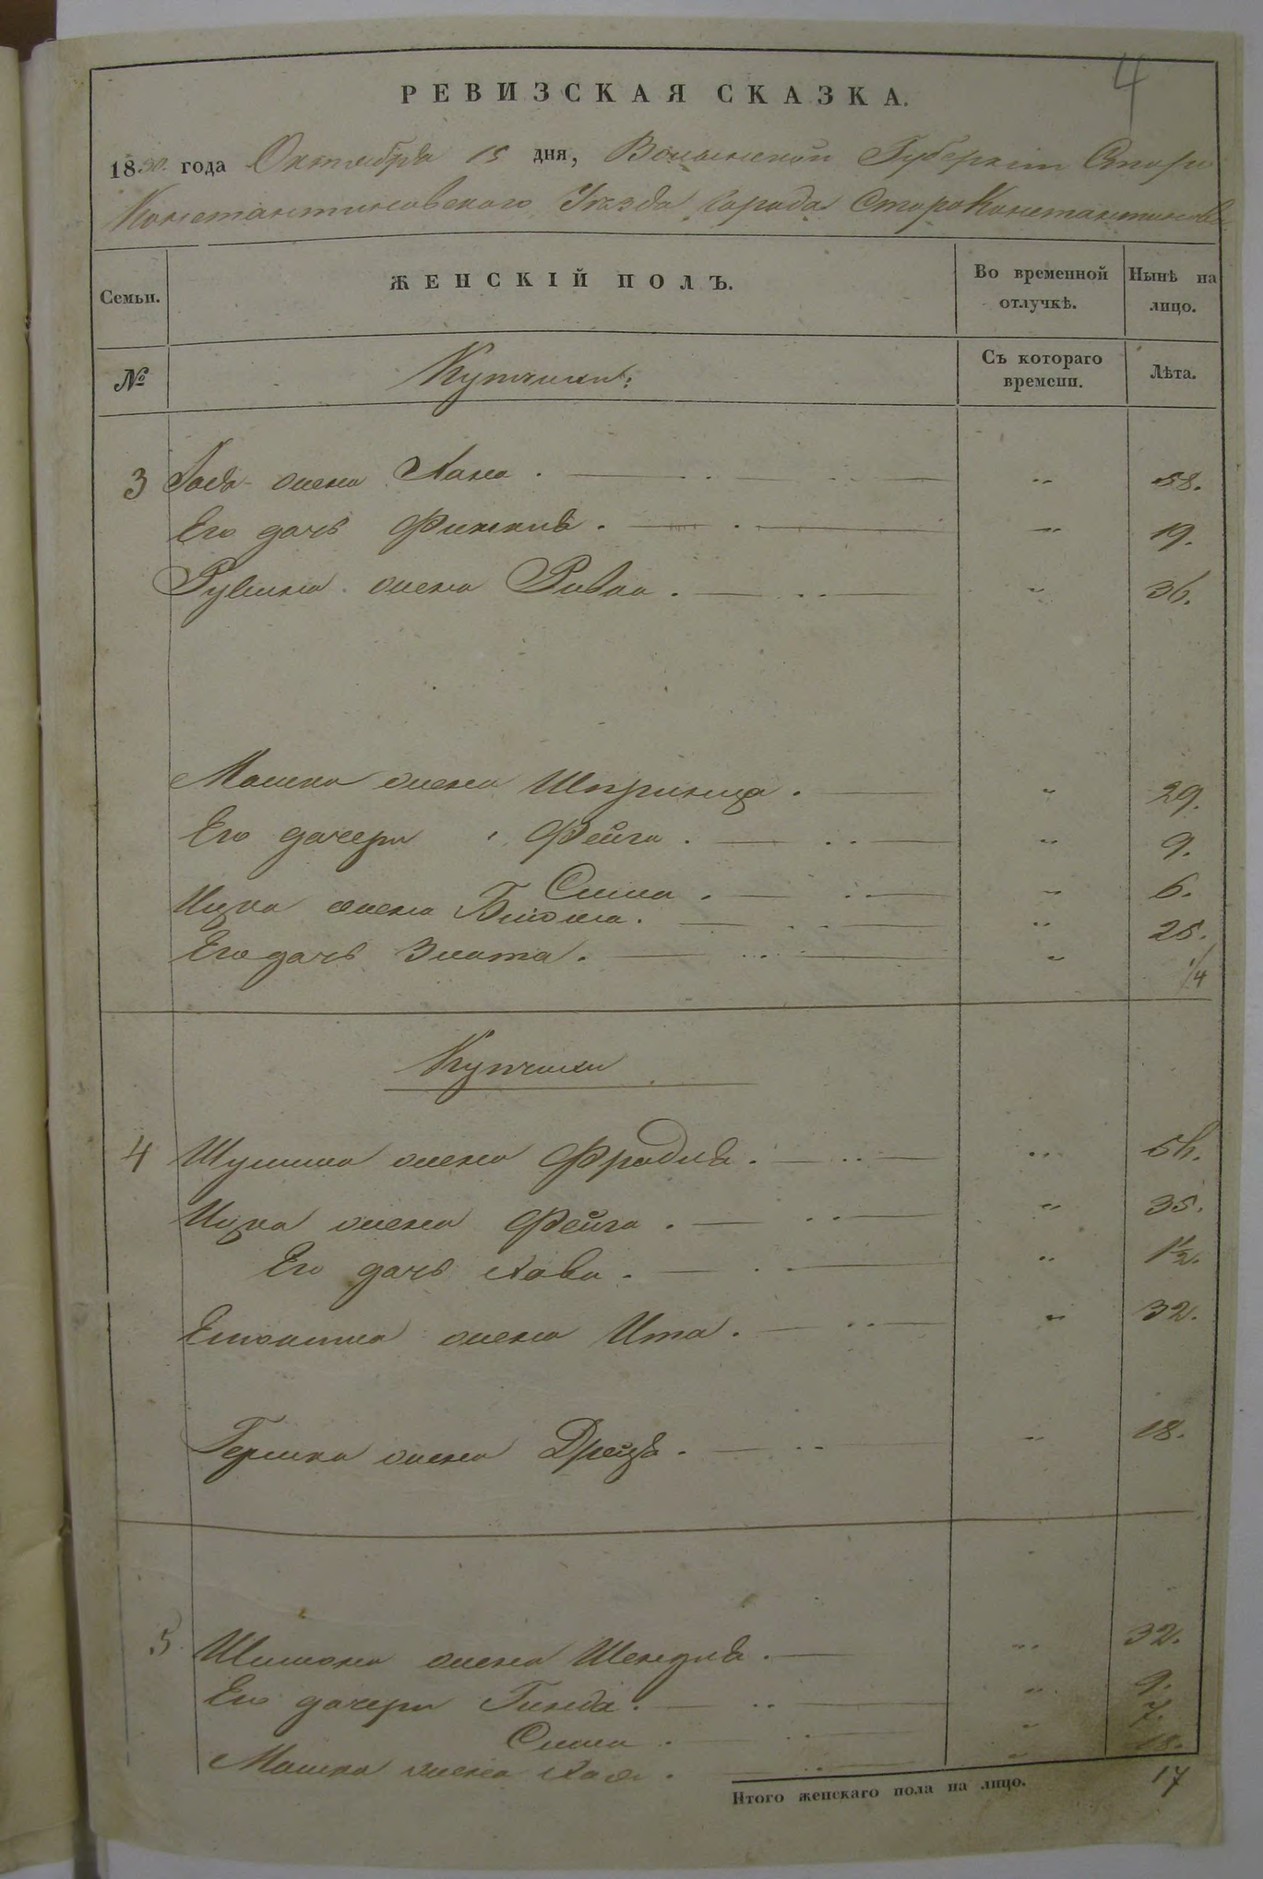 4
РЕВИЗСКАЯ СКАЗКА.
1850. года Октября 15 дня, Волынской Губернiи Старо
Константиновского Уѣзда города Старо Константинова
Семьи.
ЖЕНСКIЙ ПОЛЪ.
Во временной отлучкѣ.
Нынѣ на лицо.
№
Купчихи:
Съ котораго времени.
Лѣта.
3 жена Хана . 58.
Его дочь 19.
Рувина жена Ривка . 36.
Мошка жена Шпринца . 29.
Его дочери Фейга . 9.
Сима . 6.
Ицка жена Блюма . 25.
Его дочь Злота . 1/4
Купчихи
4 Шулима жена Фрадля . 56.
Ицка жена Фейга . 35.
Его дочь Хава . 1½.
жена Ита . 32.
Гершка жена Дрейзя . 18.
5 Шимона жена Шендля . 32.
Его дочери Гинда . 9.
Сима . 7.
Мошка жена Хая . 18.
Итого женскаго пола на лицо. 17